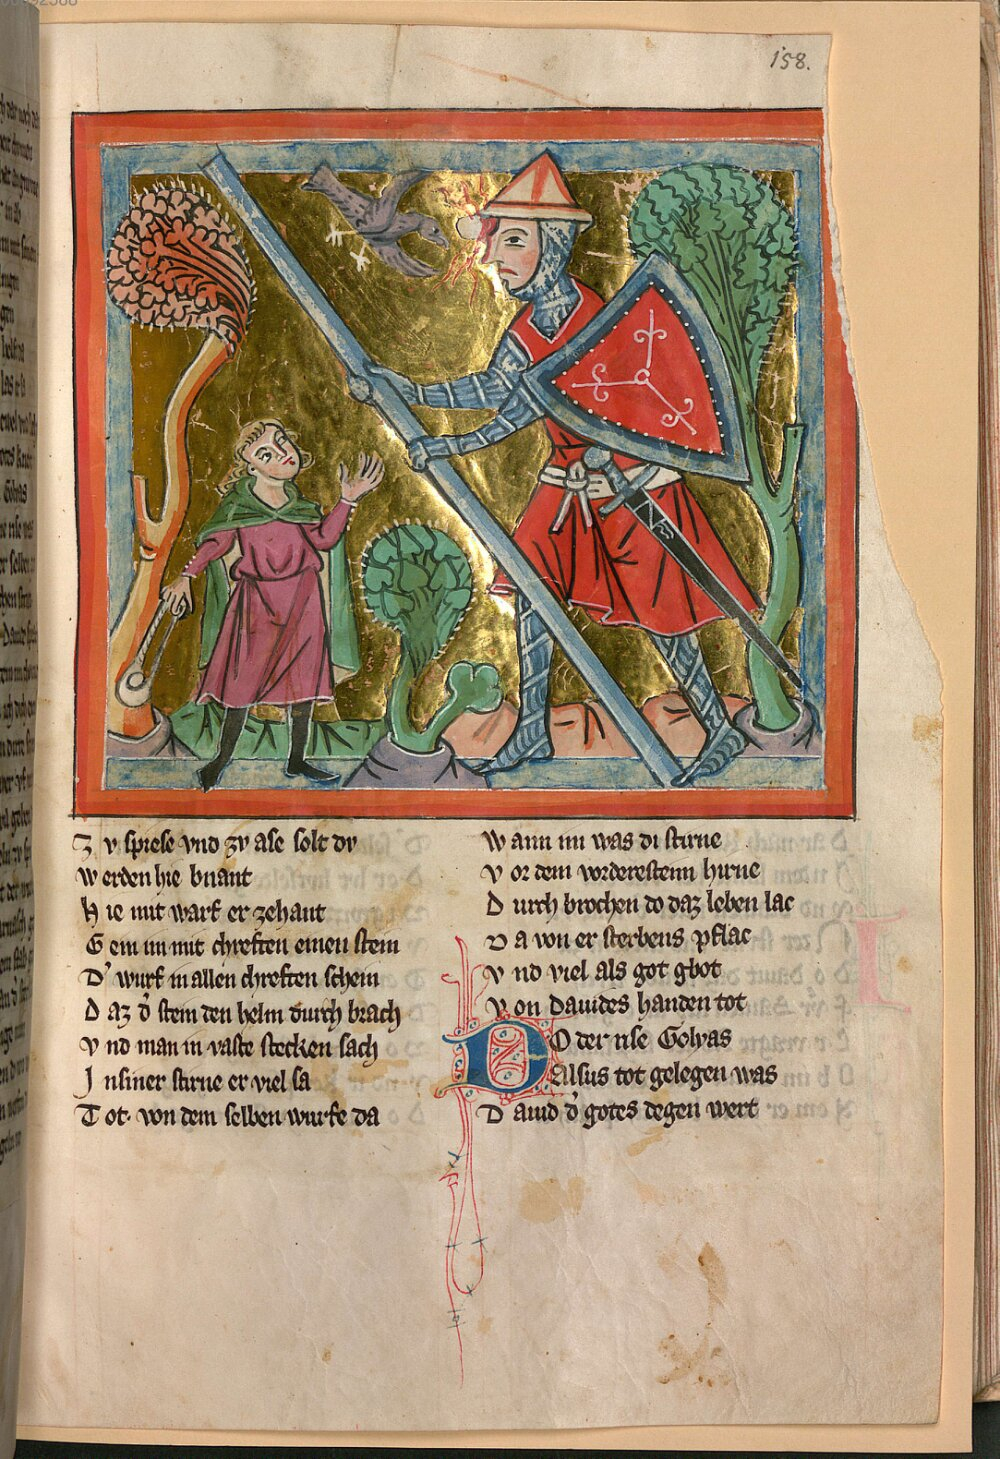 158.
Z v spise vnd zv ase solt dv
W erden hie bnant
H ie mit warf er zehant
G ein im mit chreften einen stein
D' wurf in allen chreften schein
D az d' stein den helm durch brach
V nd man in vaste stecken sach
I n siner stirne er viel sa
T ot von dem selben wurfe da
W ann im was di stirne
V or dem vorderestenn hirne
D urch brochen do daz leben lac
D a von er sterbens pflac
V nd viel als got gbot
V on Dauides handen tot
DO der rise Golyas
Alsus tot gelegen was
D auid d' gotes degen wert